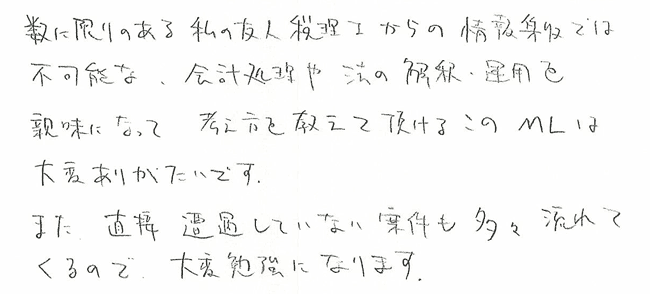 数に限りのある私の友人税理士からの情報集収では
不可能な、会計処理や法の解釈・運用を
親味になって考え方を教えて頂けるこのMLは
大変ありがたいです.
また、直接遭遇していない案件も多々流れて
くるので、大変勉強になります.